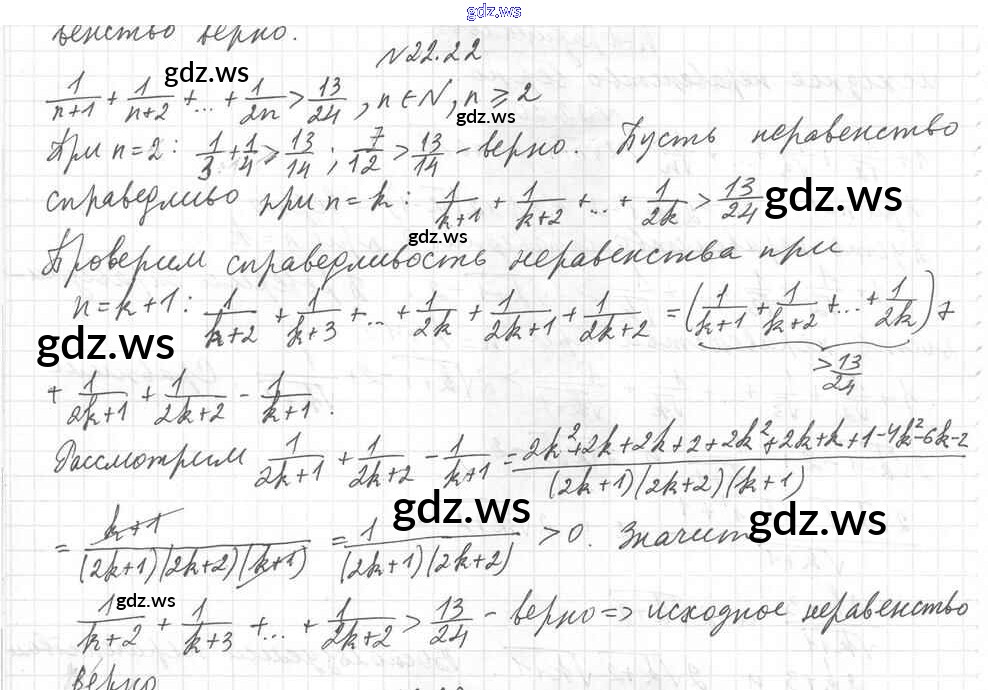 gdz.ws
венство верно.
№22.22
gdz.ws
1/(n+1) + 1/(n+2) + ... + 1/2n > 13/24, n ∈ N, n ≥ 2
gdz.ws
При n=2: 1/3 + 1/4 > 13/14; 7/12 > 13/14 – верно. Пусть неравенство
справедливо при n=k: 1/(k+1) + 1/(k+2) + ... + 1/2k > 13/24
gdz.ws
gdz.ws
Проверим справедливость неравенства при
n=k+1: 1/(k+2) + 1/(k+3) + ... + 1/2k + 1/(2k+1) + 1/(2k+2) = (1/(k+1) + 1/(k+2) + ... + 1/2k) +
gdz.ws
> 13/24
+ 1/(2k+1) + 1/(2k+2) - 1/(k+1).
Рассмотрим 1/(2k+1) + 1/(2k+2) - 1/(k+1) = (2k²+2k+2k+2+2k²+2k+k+1-4k²-6k-2)/((2k+1)(2k+2)(k+1))
gdz.ws
gdz.ws
= (k+1)/((2k+1)(2k+2)(k+1)) = 1/((2k+1)(2k+2)) > 0. Значит
gdz.ws
1/(k+2) + 1/(k+3) + ... + 1/(2k+2) > 13/24 – верно => исходное неравенство
верно